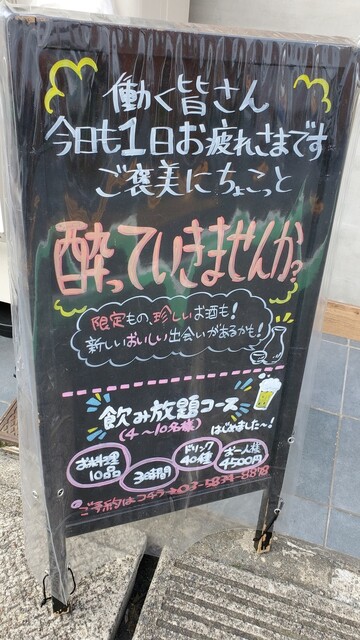 働く皆さん
今日も1日お疲れさまです
ご褒美にちょこっと
酔っていきませんか?
限定もの、珍しいお酒も!
新しいおいしい出会いがあるかも!
飲み放題コース
(4〜10名様)
はじめました〜!
お料理
10品
3時間
ドリンク
40種
お一人様
4500円
ご予約はコチラ→03-5834-8898